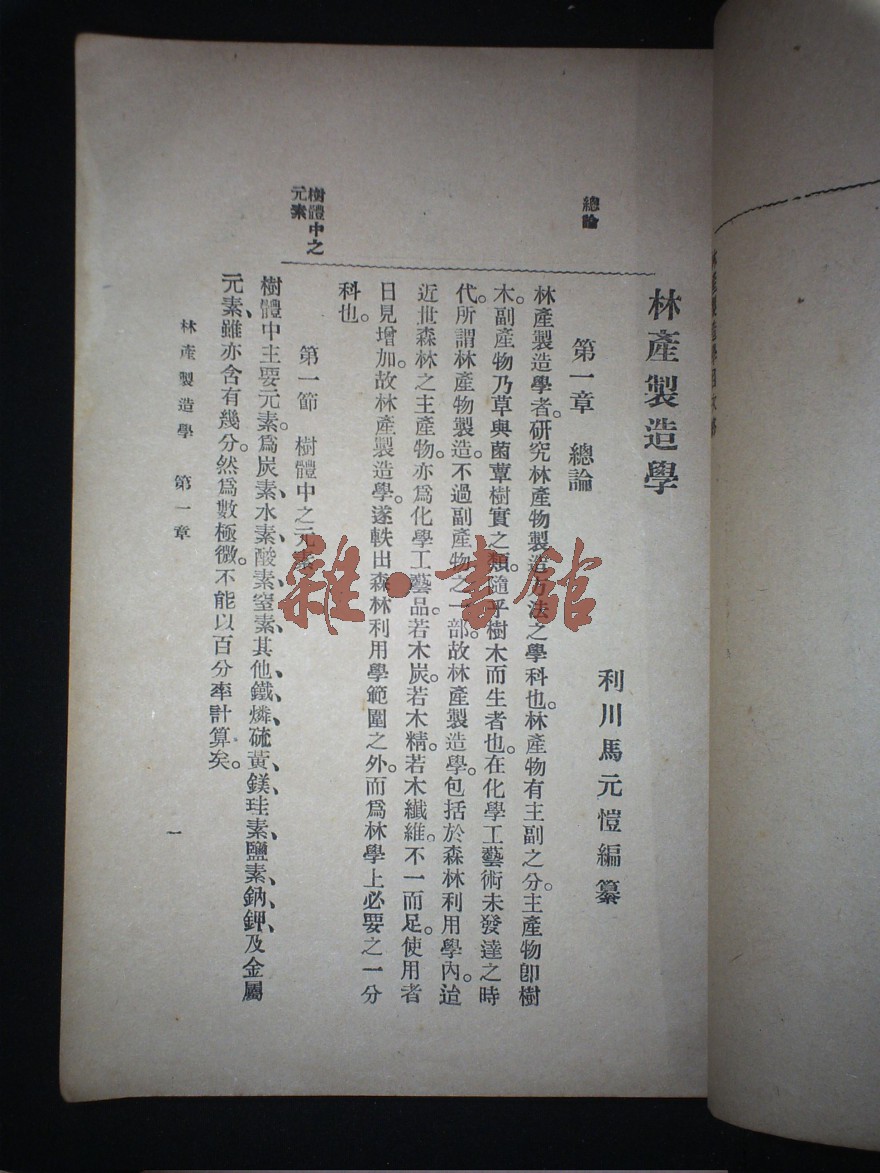 林產製造學
利川馬元愷編纂
總論
第一章　總論
林產製造學者。研究林產物製造方法之學科也。林產物有主副之分。主產物卽樹
木。副產物乃草與菌蕈樹實之類。隨乎樹木而生者也。在化學工藝術未發達之時
代。所謂林產物製造。不過副產物之一部。故林產製造學。包括於森林利用學內。迨
近世森林之主產物。亦爲化學工藝品。若木炭。若木精。若木纖維。不一而足。使用者
日見增加。故林產製造學。遂軼出森林利用學範圍之外。而爲林學上必要之一分
科也。
樹體中之
元素
第一節　樹體中之元素
樹體中主要元素。爲炭素、水素、酸素、窒素、其他鐵、燐、硫黃、鎂、珪素、鹽素、鈉、鉀、及金屬
元素、雖亦含有幾分。然爲數極微。不能以百分率計算矣。
林產製造學　第一章
一
雜·書館